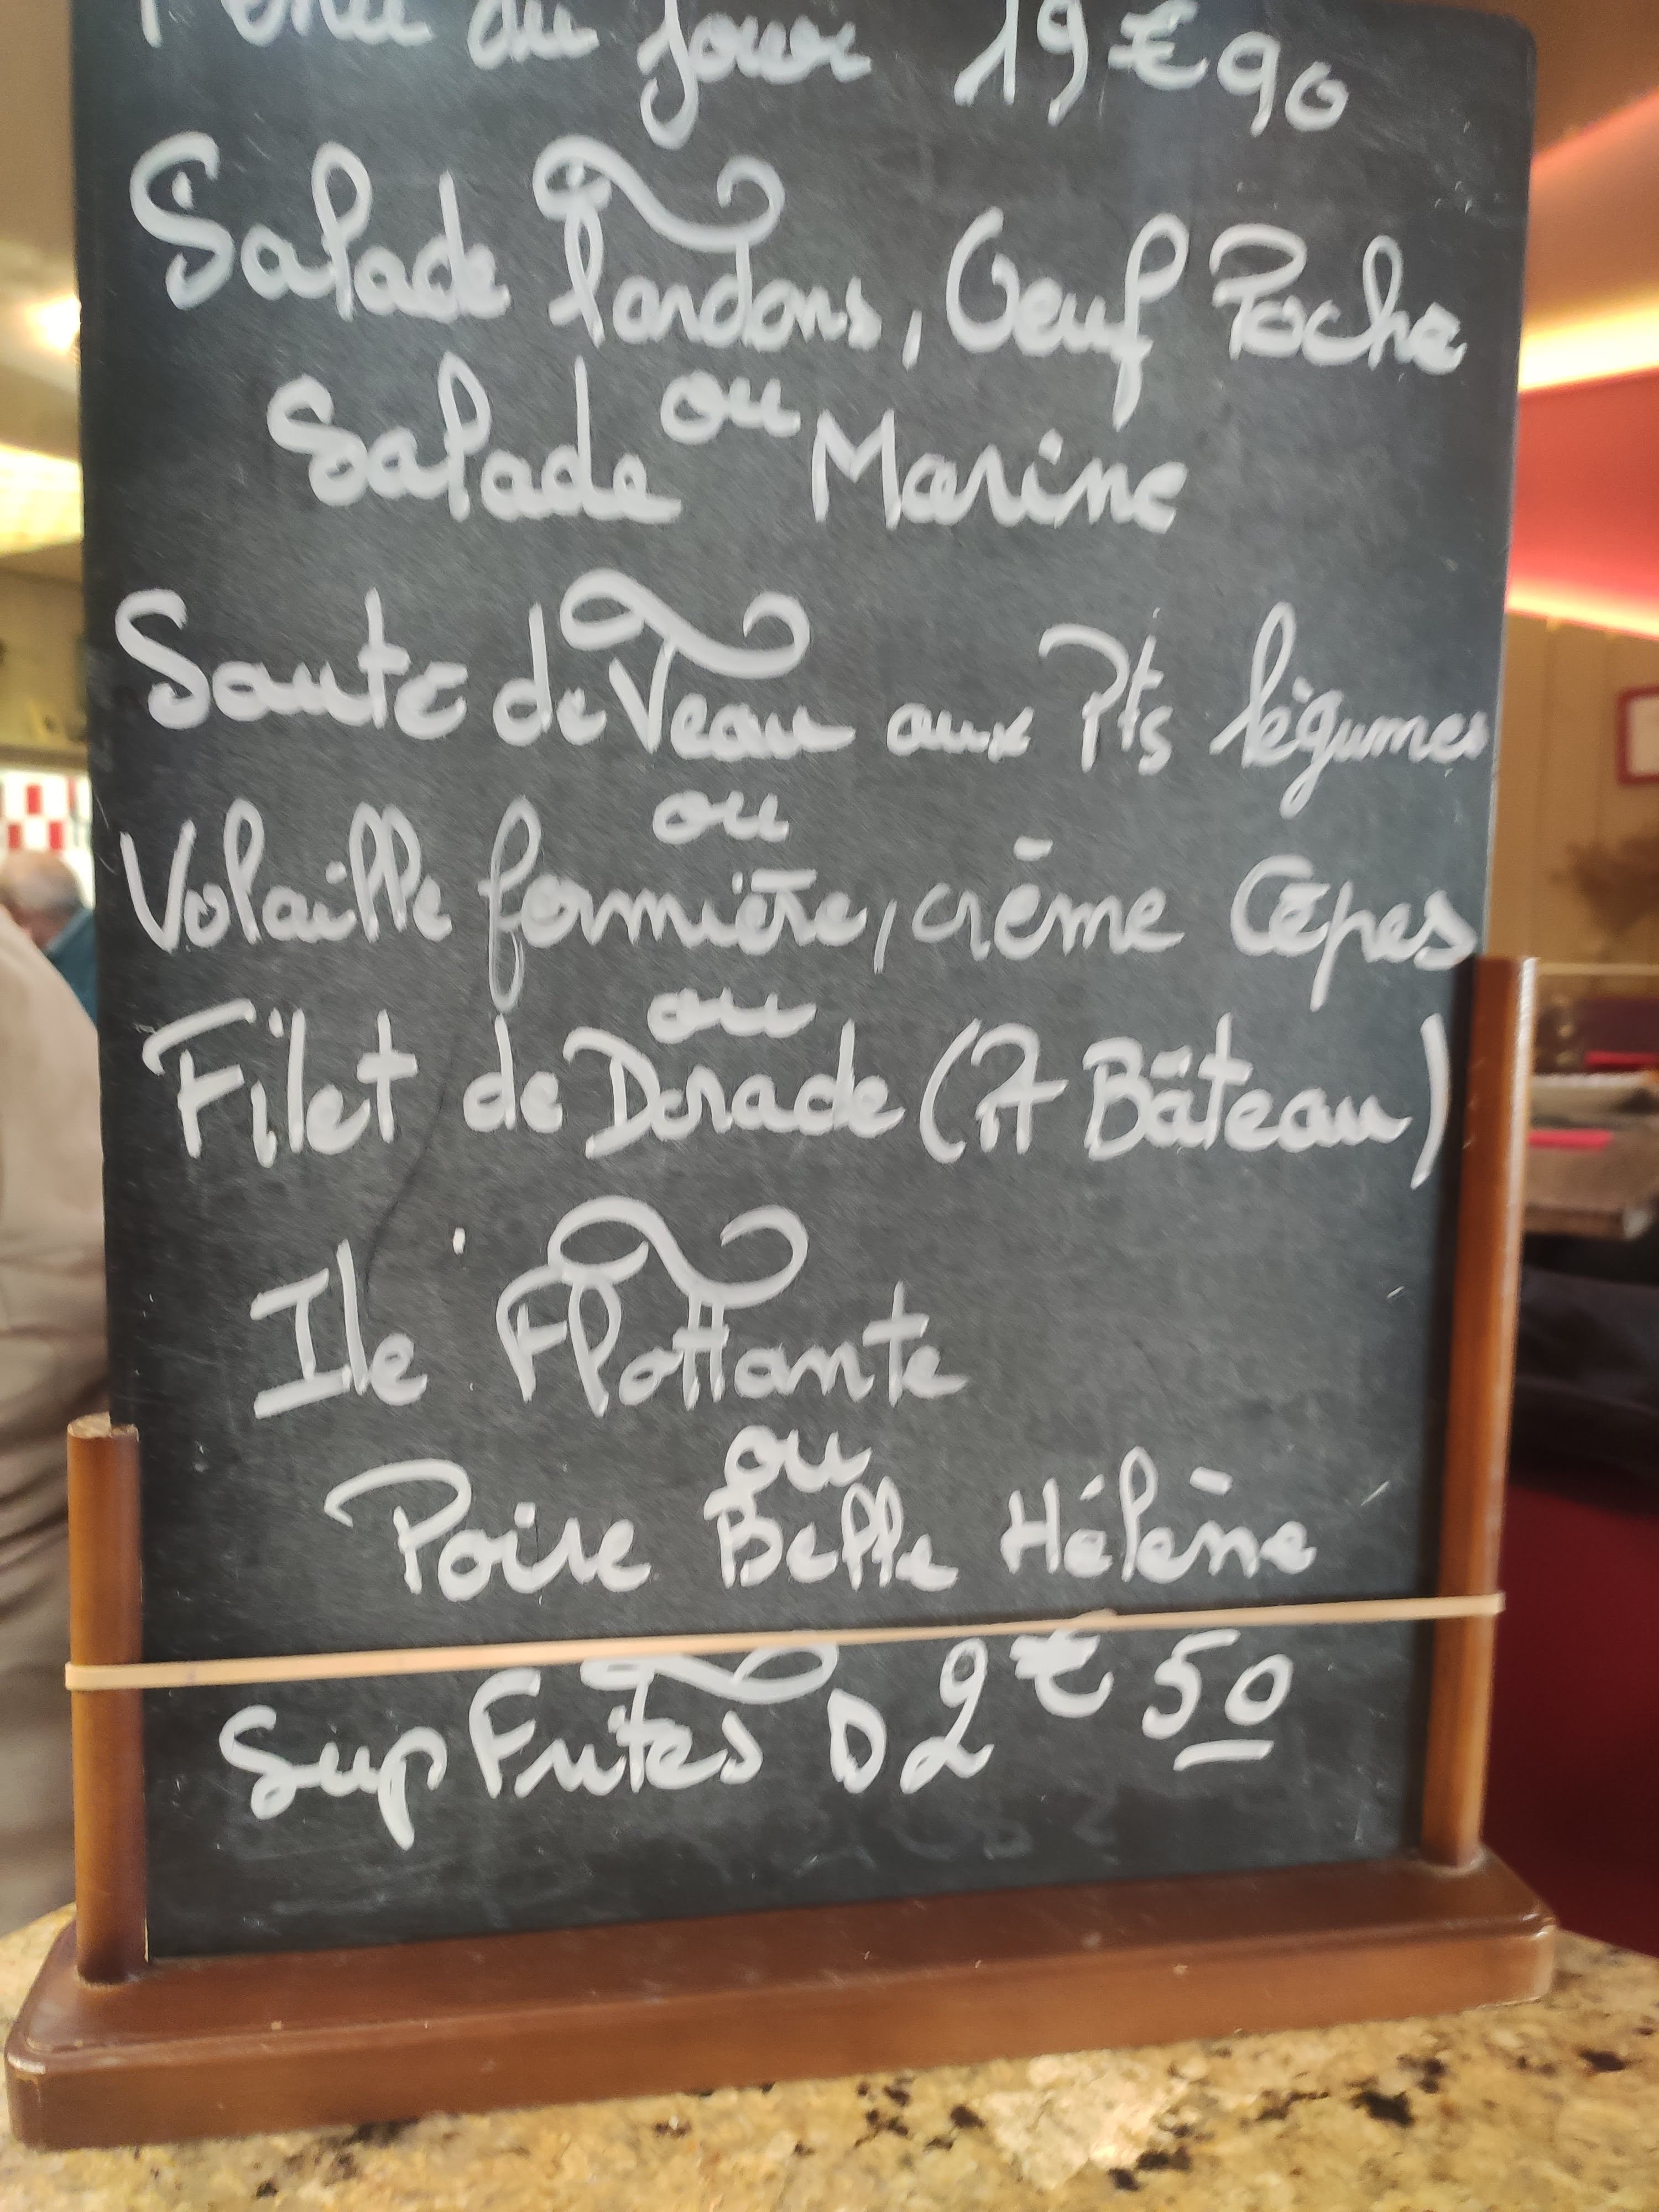 Menu du jour 19€90
Salade lardons, Oeuf Poche
ou
Salade Marine
Saute de Veau aux Pts légumes
ou
Volaille fermière, crème Cēpes
ou
Filet de Dorade (Pt Bâteau)
Ile Flottante
ou
Poire Belle Hélène
Sup Frites D 2€50